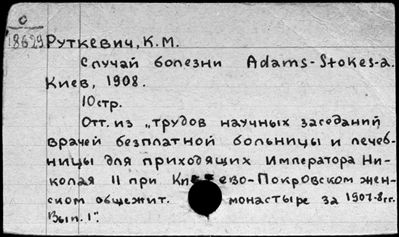 С
18629
Руткевич, К.М.
Случай болезни Adams-Stokes-а.
Киев, 1908.
10стр.
Отт. из „трудов научных заседаний
врачей бесплатной больницы и лечеб-
ницы для приходящих Императора Ни-
колая II при Ки ево-Покровском жен-
ском общежит. монастыре за 1907-8гг.
Вып. 1".